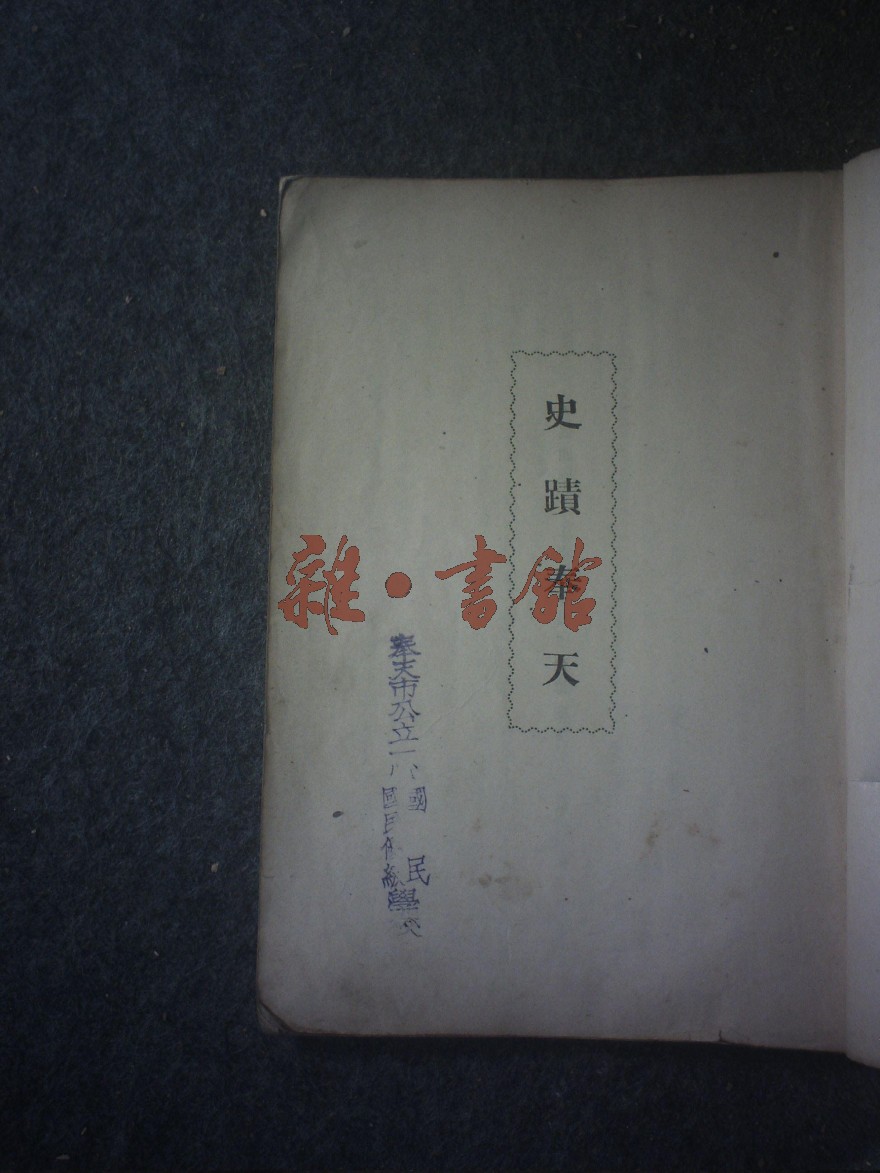 史蹟奉天
雜·書館
奉天市公立一八
國民優級學校
國民